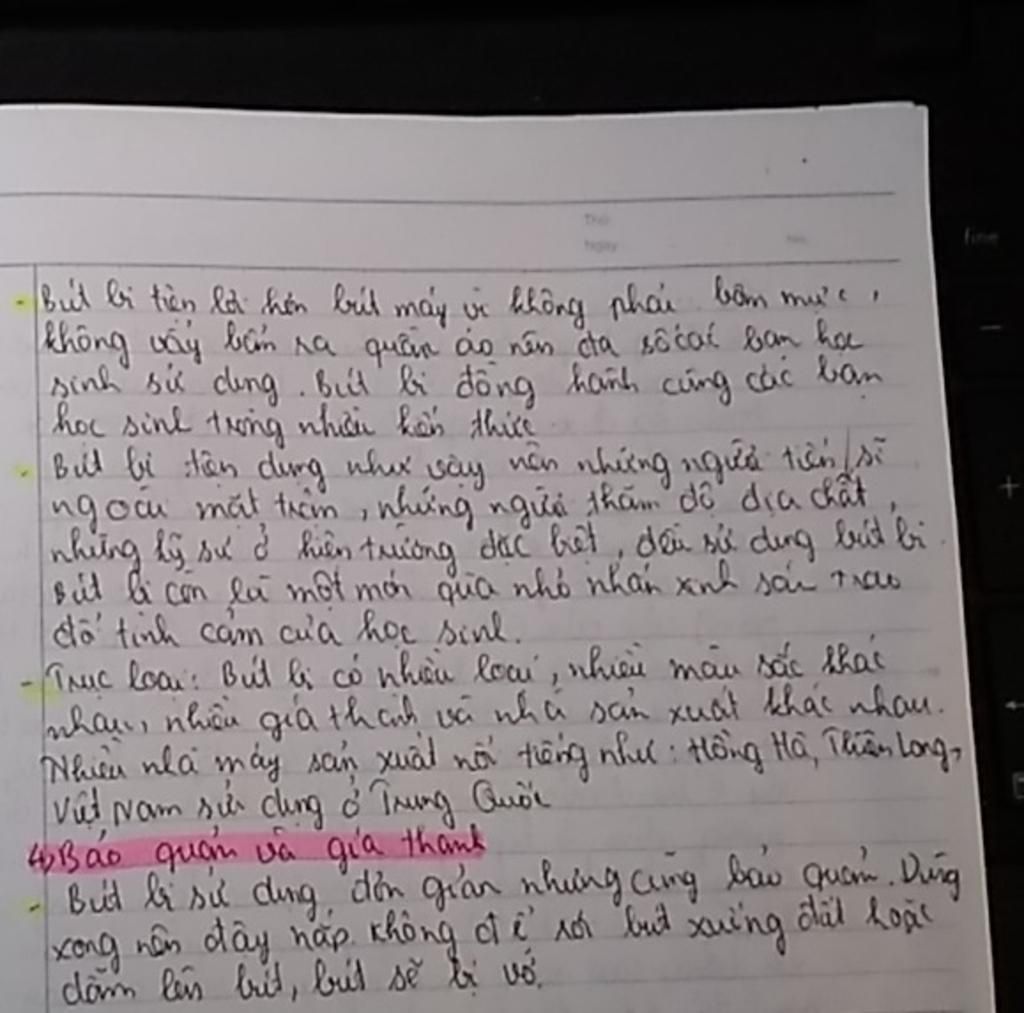 Thứ
Ngày
No.
fine
- Bút bi tiện lợi hơn bút máy vì không phải bơm mực,
không vấy bẩn ra quần áo nên đa số các bạn học
sinh sử dụng. Bút bi đồng hành cùng các bạn
học sinh trong nhiều kiến thức
- Bút bi tiện dụng như vậy nên những người tiến sĩ
ngoài mặt trận, những người thăm dò địa chất,
những kỹ sư ở hiện trường đặc biệt, đều sử dụng bút bi.
Bút bi còn là một món quà nhỏ nhắn xinh xắn trao
đổ tình cảm của học sinh.
- Trục loại: Bút bi có nhiều loại, nhiều màu sắc khác
nhau, nhiều giá thành và nhà sản xuất khác nhau.
Nhiều nhà máy sản xuất nổi tiếng như: Hồng Hà, Thiên Long,
Việt Nam sử dụng ở Trung Quốc
4) Bảo quản và giá thành
- Bút bi sử dụng đơn giản nhưng cũng bảo quản. Dùng
xong nên đậy nắp. Không để rơi bút xuống đất hoặc
dẫm lên bút, bút sẽ bị vỡ.